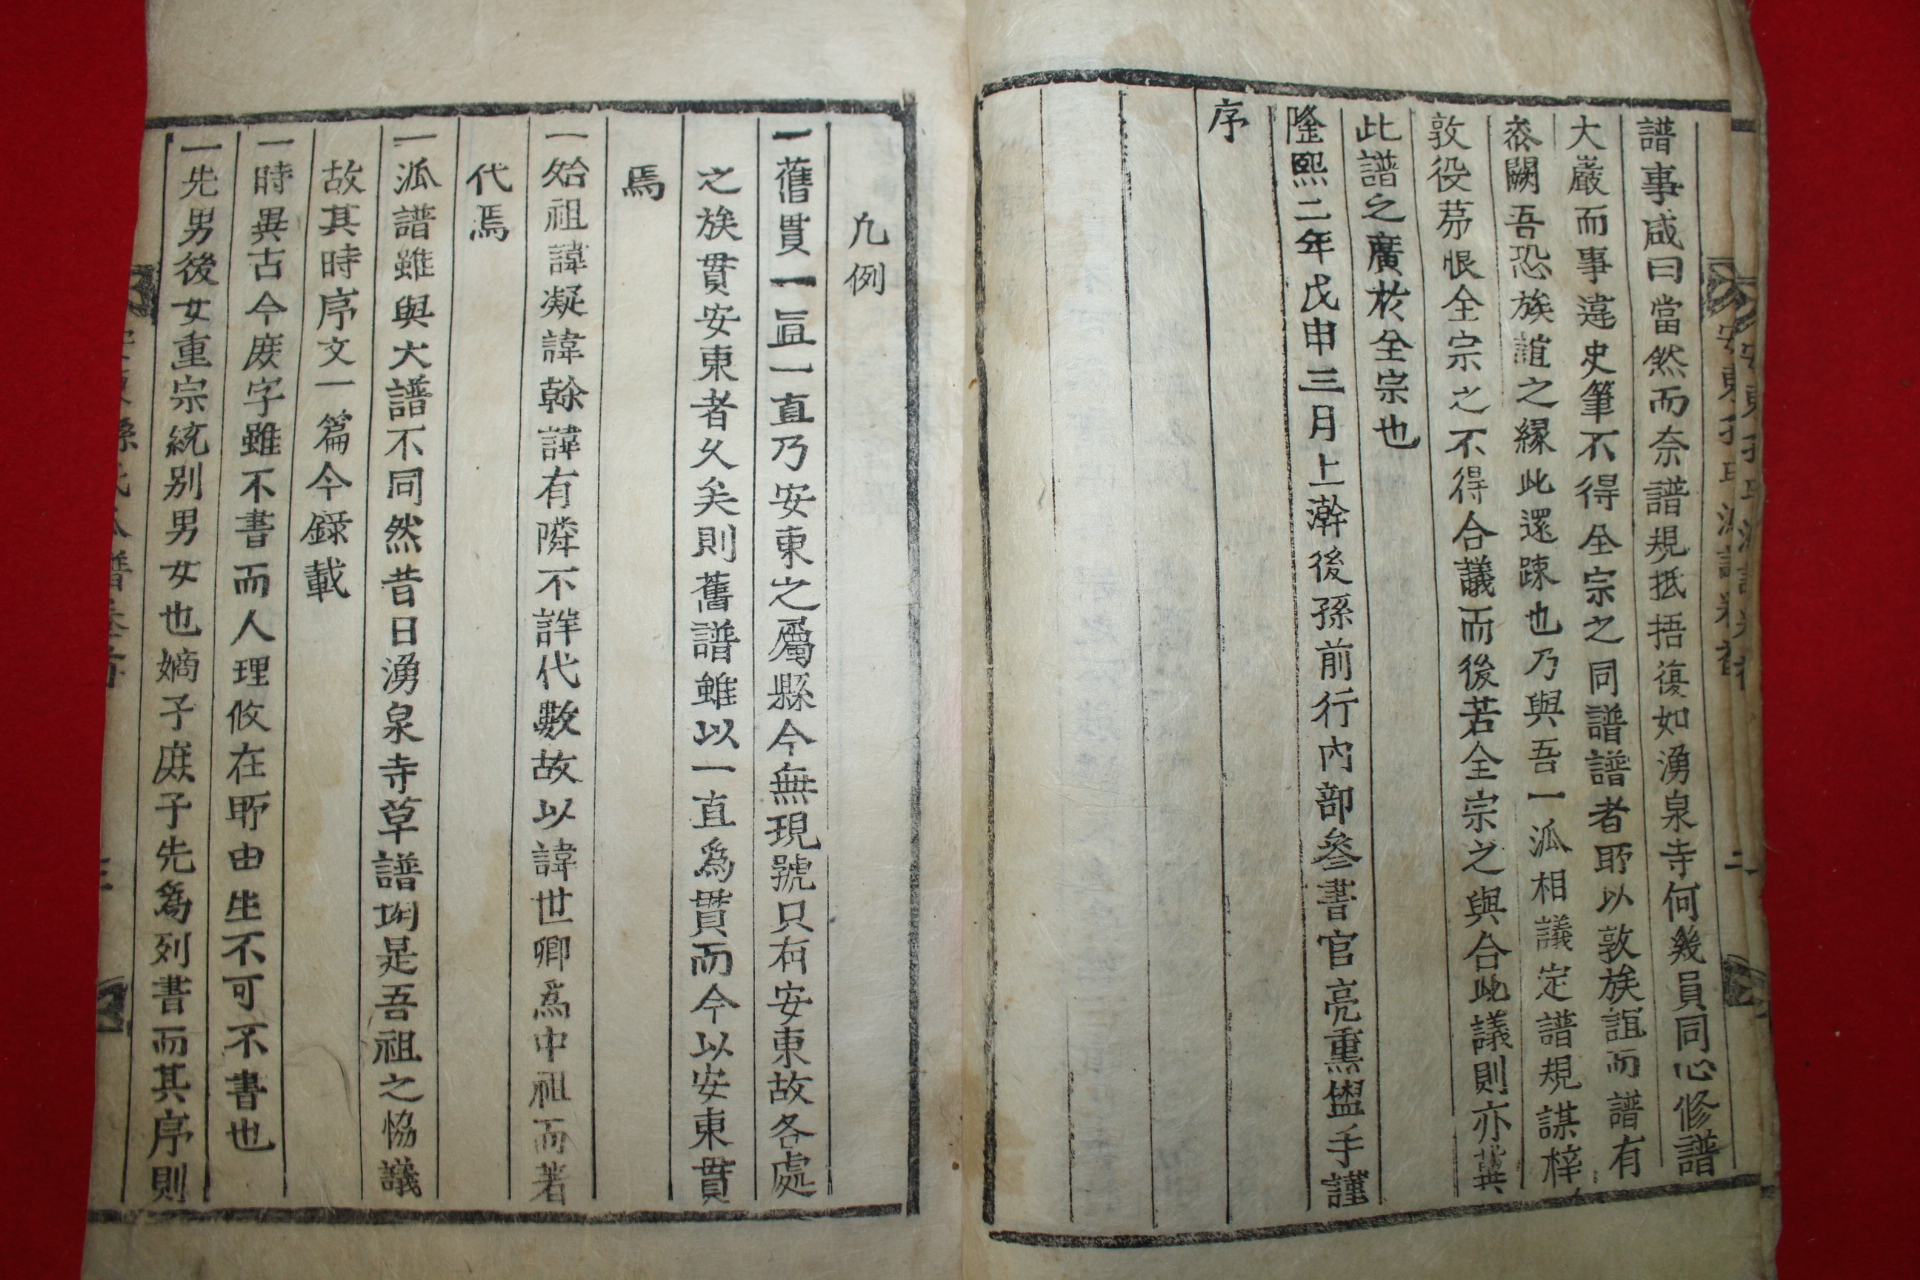 譜事咸曰當然而奈譜規抵捂復如湧泉寺何幾員同心修譜
大嚴而事違史筆不得全宗之同譜譜者所以敦族誼而譜有
忝闕吾恐族誼之緣此還踈也乃與吾一派相議定譜規謀梓
敦役苐恨全宗之不得合議而後若全宗之與合此議則亦冀
此譜之廣於全宗也
隆熙二年戊申三月上澣後孫前行內部參書官亮熏盥手謹
序
凡例
一舊貫一直一直乃安東之屬縣今無現號只有安東故各處
之族貫安東者久矣則舊譜雖以一直為貫而今以安東貫
焉
一始祖諱凝諱翰諱有隣不詳代數故以諱世卿為中祖而著
代焉
一派譜雖與大譜不同然昔日湧泉寺草譜固是吾祖之恊議
故其時序文一篇今錄載
一時異古今庶字雖不書而人理攸在所由生不可不書也
一先男後女重宗統別男女也嫡子庶子先為列書而其序則